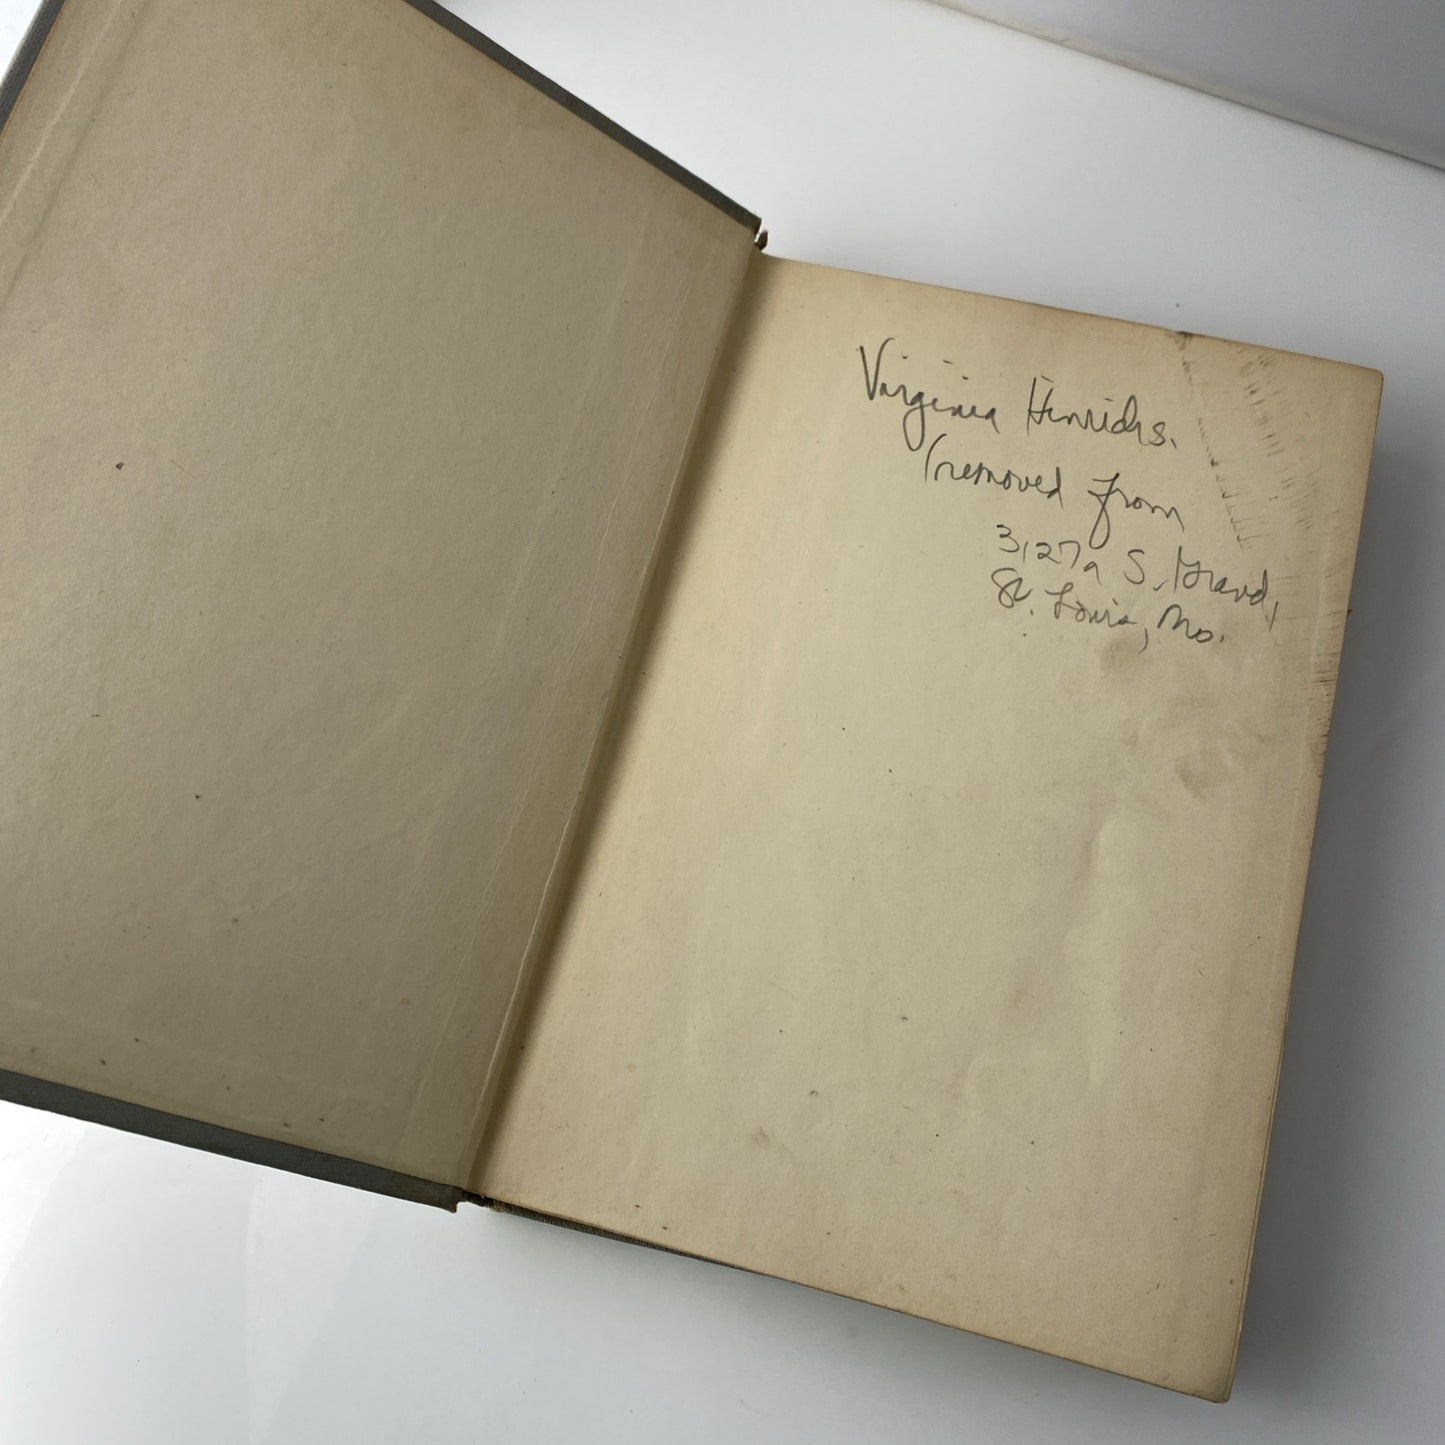 Virginia Hinrichs.
(removed from
3127a S. Grand,
St. Louis, Mo.